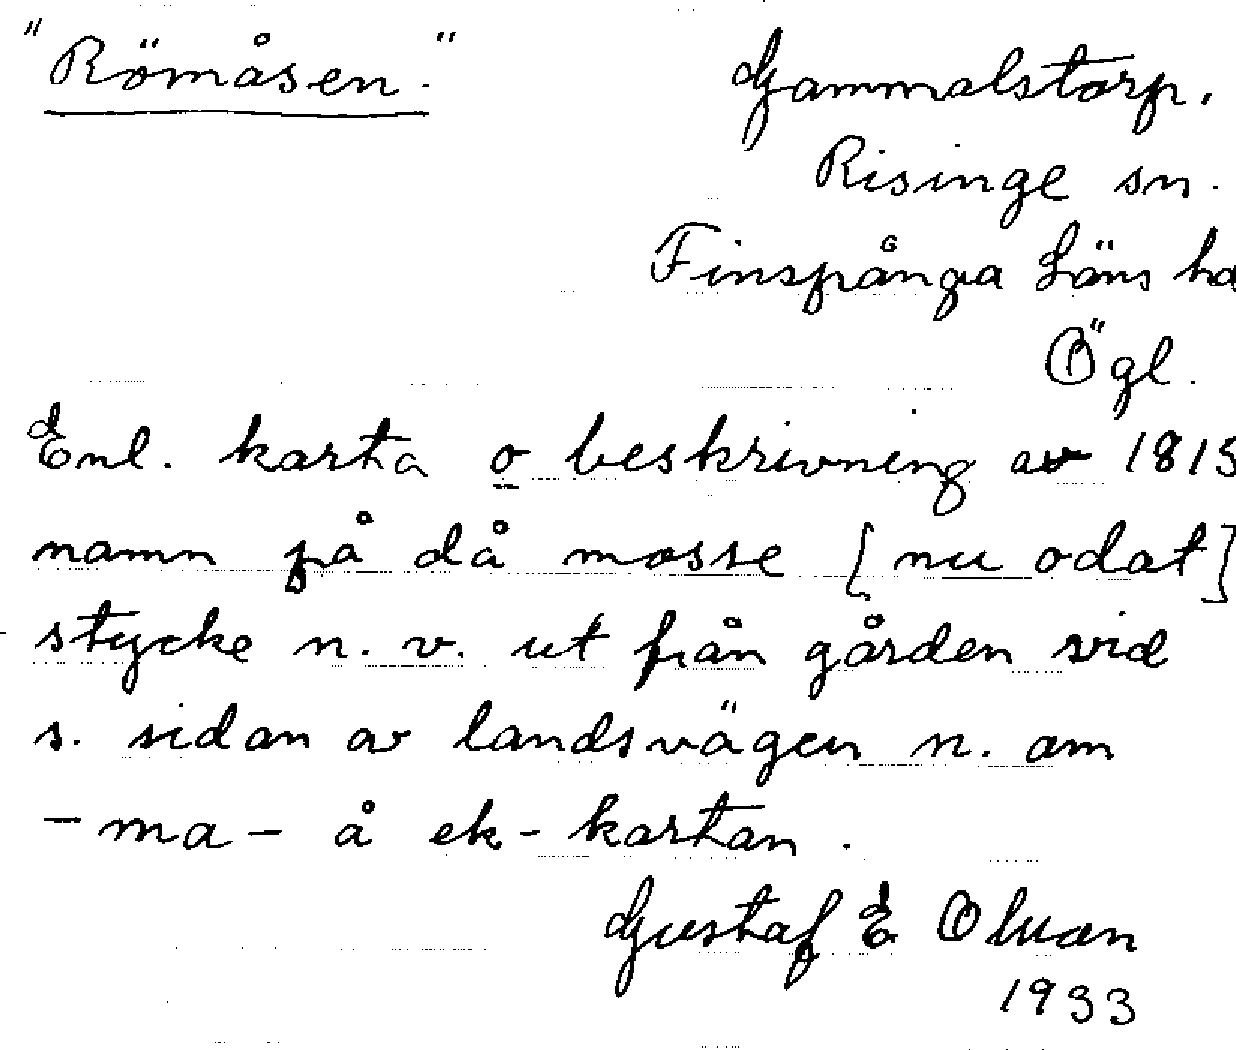 "Römåsen."
Gammalstorp.
Risinge sn.
Finspånga Läns ha
Ögl.
Enl. karta o beskrivning av 1813
namn på då mosse [nu odat]
stycke n. v. ut från gården vid
s. sidan av landsvägen n. om
-ma- å ek-kartan.
Gustaf E
1933